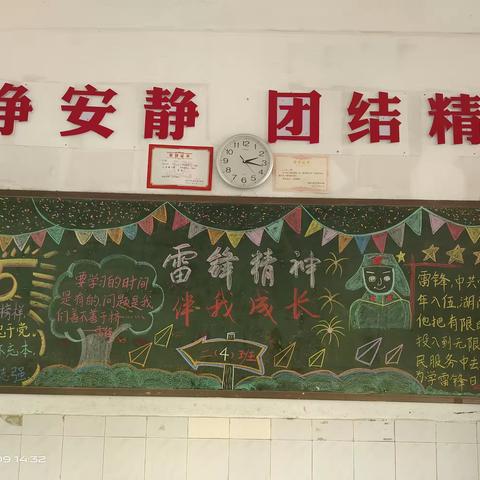 静安静 团结精
雷锋精神
伴我成长
二（4）班
要学习的时间
是有的,问题是我
们善不善于挤……
5
榜样
于党,
本,
强
雷锋,中共
年入伍,湖南
他把有限的
投入到无限
民服务中去
为学雷锋日
09 14:32